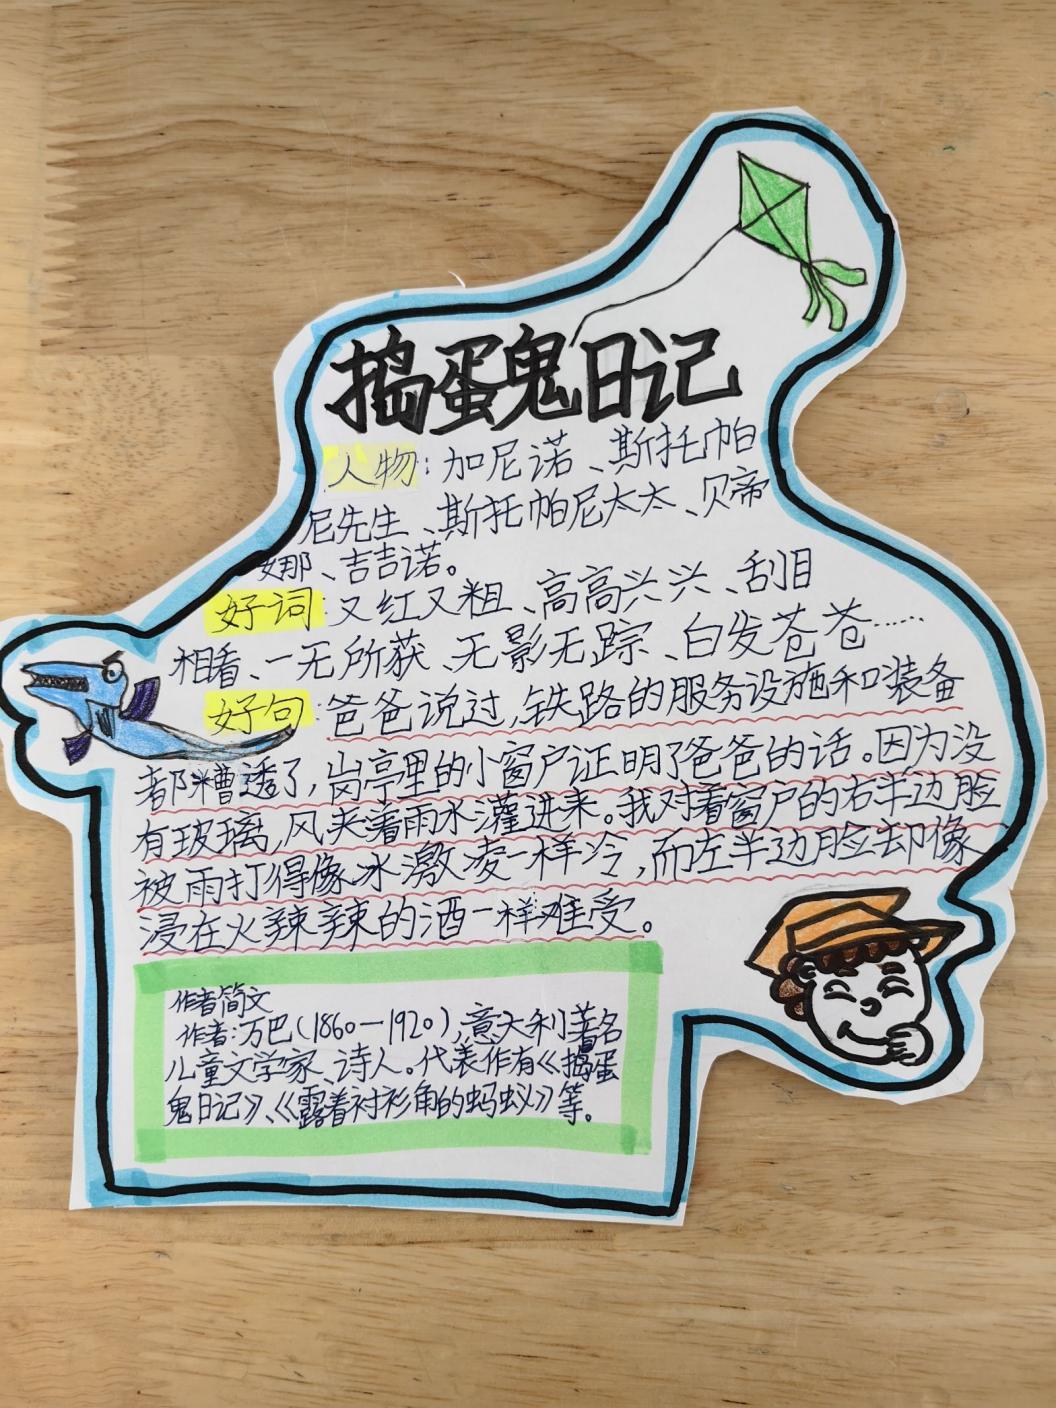 捣蛋鬼日记
人物：加尼诺、斯托帕
尼先生、斯托帕尼太太、贝帝
娜、吉吉诺。
好词：又红又粗、高高兴兴、刮目
相看、一无所获、无影无踪、白发苍苍……
好句：爸爸说过，铁路的服务设施和装备
都糟透了，岗亭里的小窗户证明了爸爸的话。因为没
有玻璃，风夹着雨水灌进来。我对着窗户的右半边脸
被雨打得像冰激凌一样冷，而左半边脸却像
浸在火辣辣的酒一样难受。
作者简文
作者：万巴（1860—1920），意大利著名
儿童文学家、诗人。代表作有《捣蛋
鬼日记》、《露着衬衫角的蚂蚁》等。